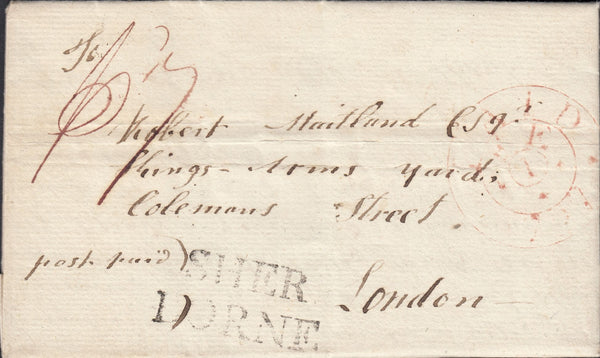 To
Robert Maitland Esqr.
Kings-Arms Yard,
Colemans Street.
post paid)
London
SHER
BORNE